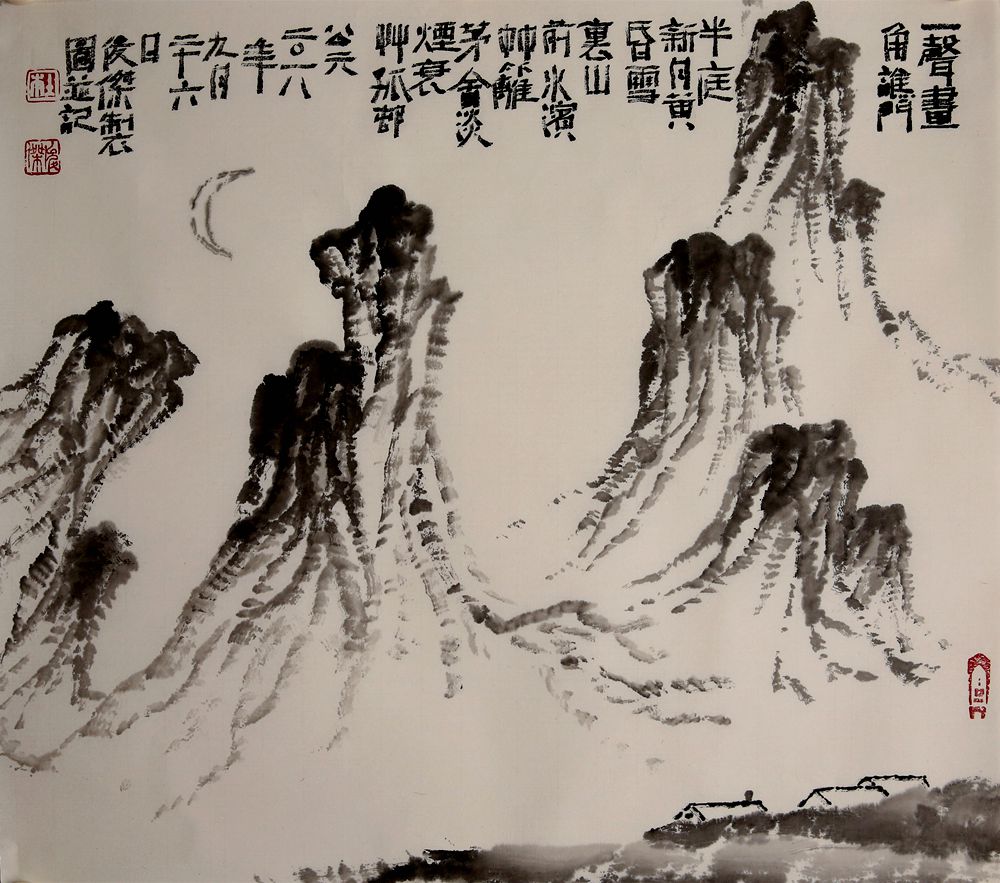 一聲畫
角譙門
半庭
新月黄
昏雪
裏山
前水濱
竹籬
茅舍淡
煙衰
艸孤邨
公元
二〇一八
年
九月
二十六
日
侯傑製
圖並記
侯傑